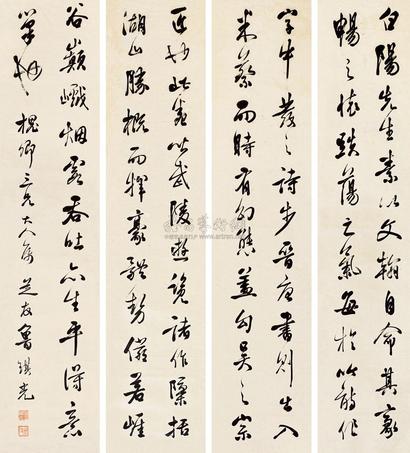 白陽先生素以文翰自命其豪
暢之懷跌蕩之氣每於吟敲作
字中發之詩步晉唐書則出入
米蔡而時有幻態蓋勾吳之宗
匠也此卷以武陵遊諸作隱括
湖山勝概而揮毫勢儼若崖
谷巔巇烟雲吞吐亦生平得意
筆也 槐卿三兄大人屬 芝友魯琪光